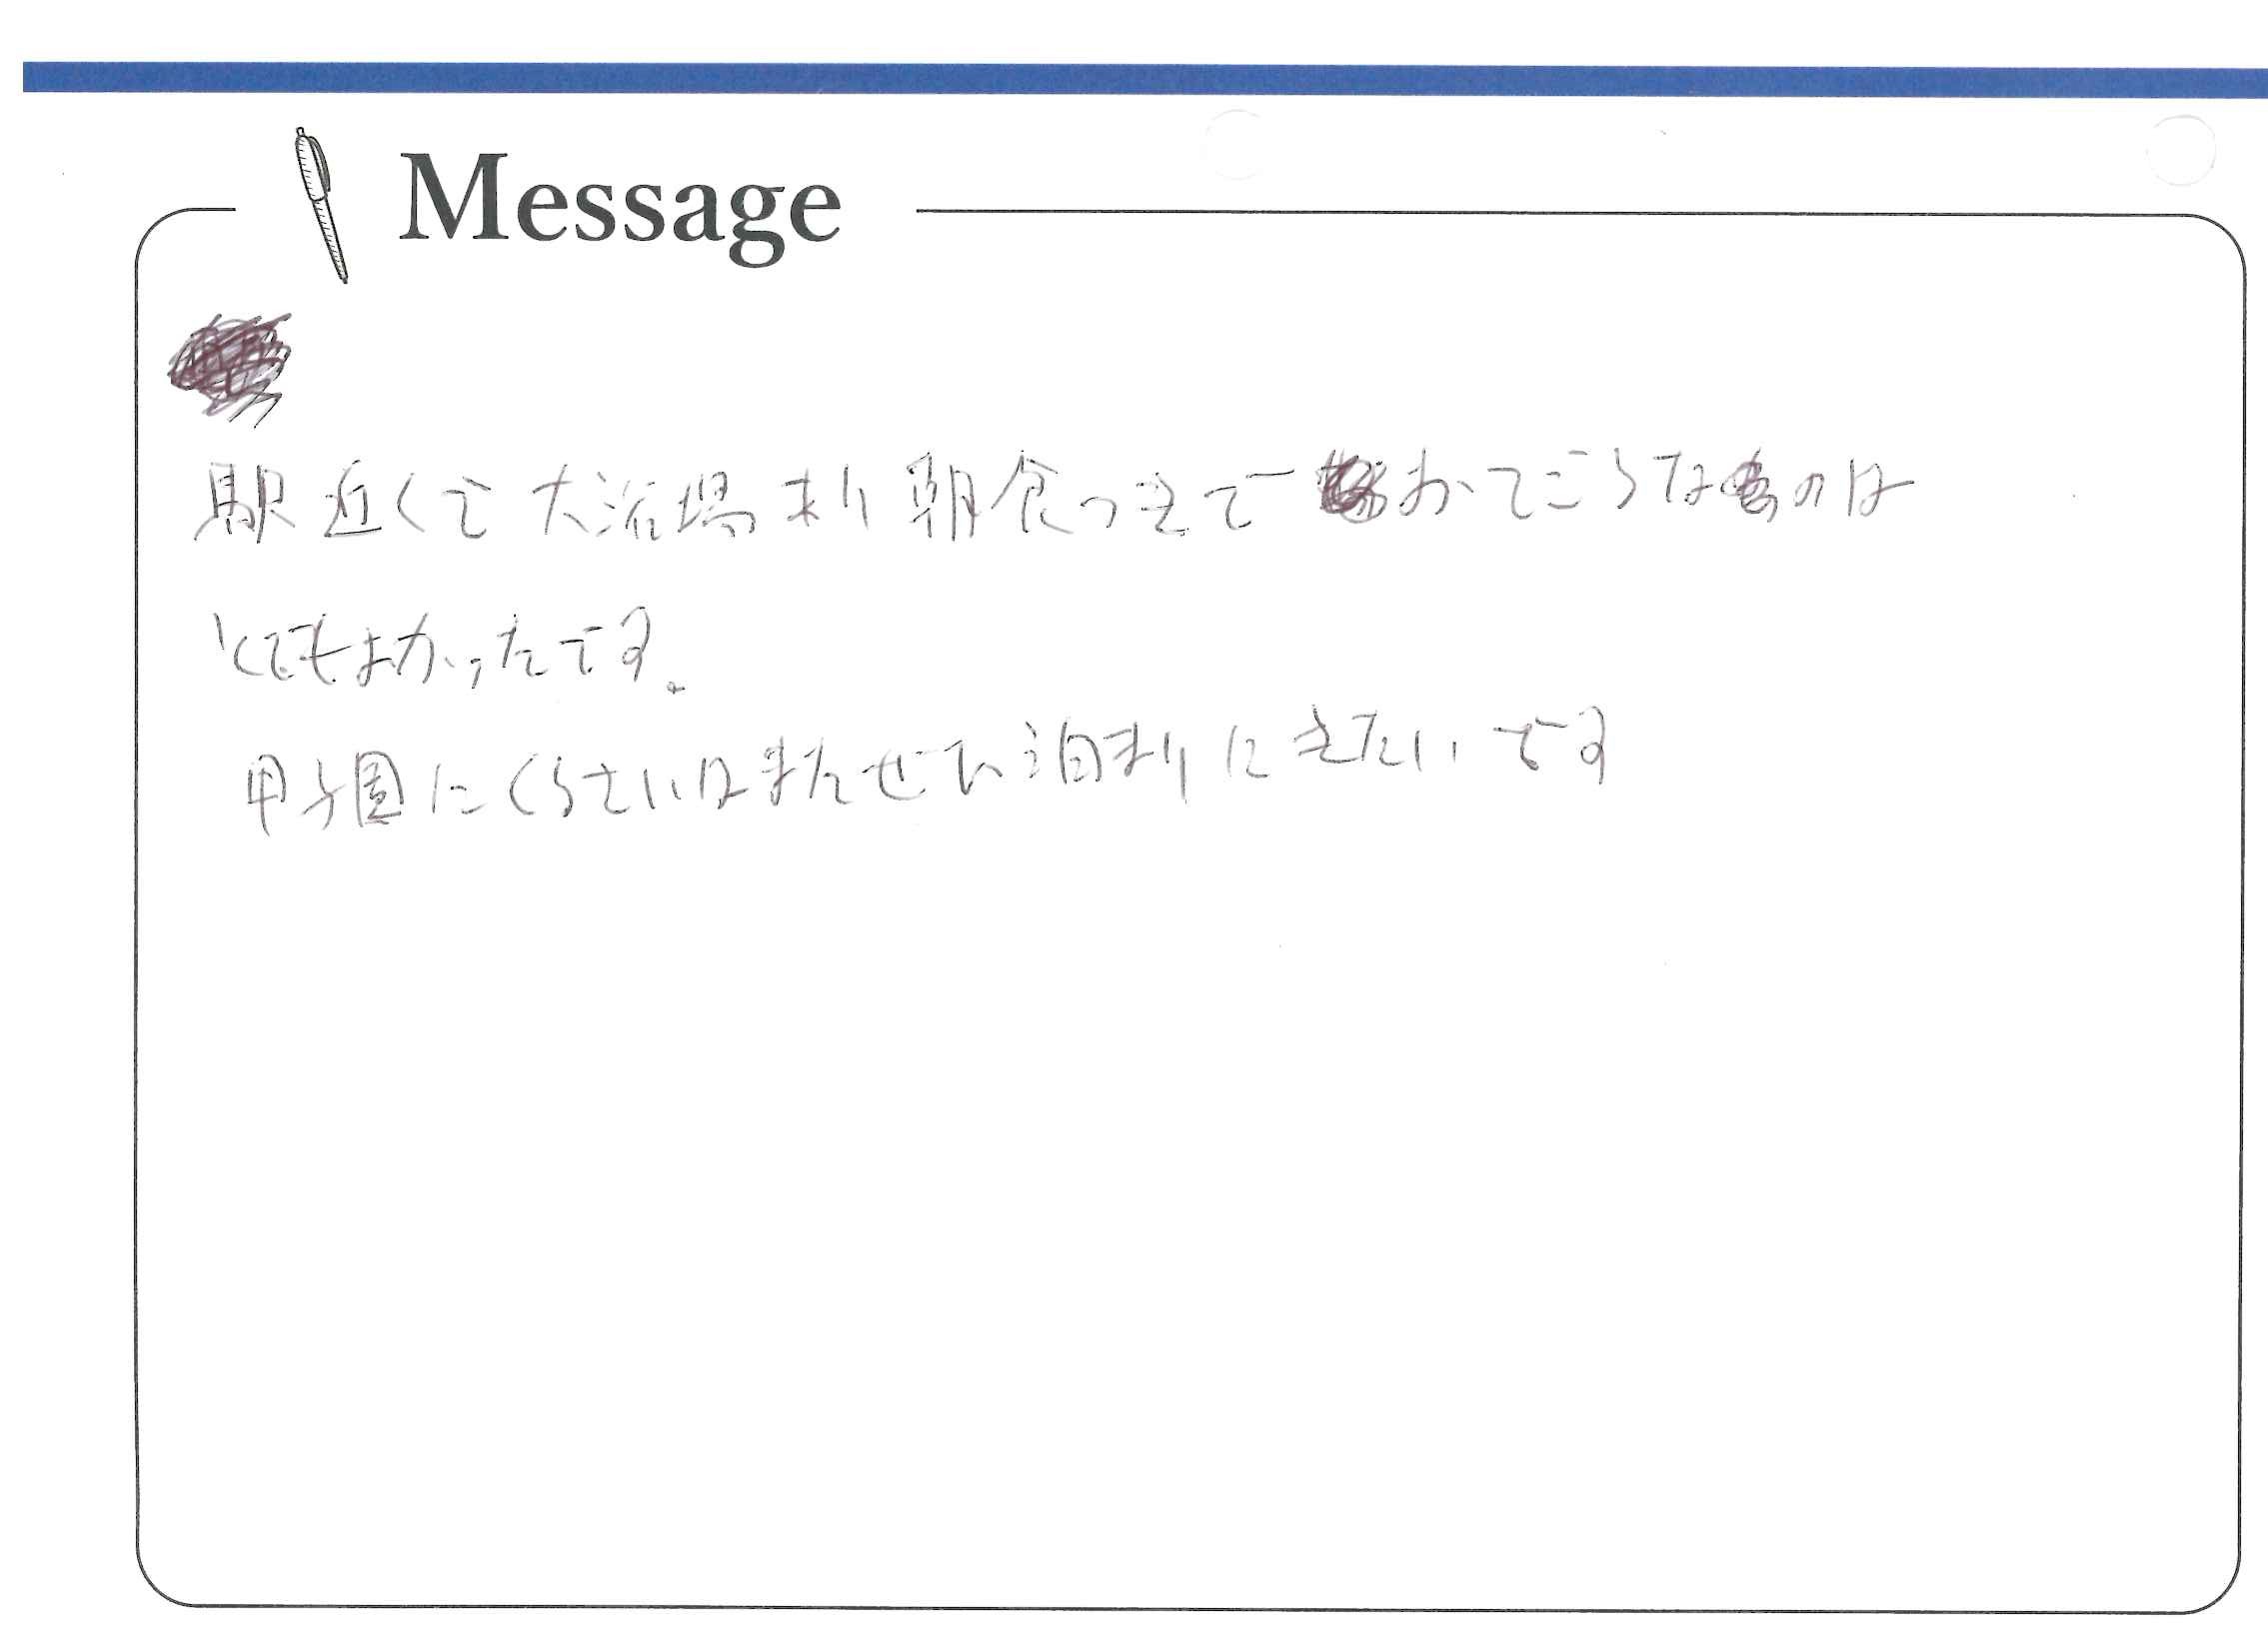 Message
駅近くで大浴場あり朝食つきでおてごろなのは
とてもよかったです。
甲子園にくるさいはまたぜひ泊まりにきたいです